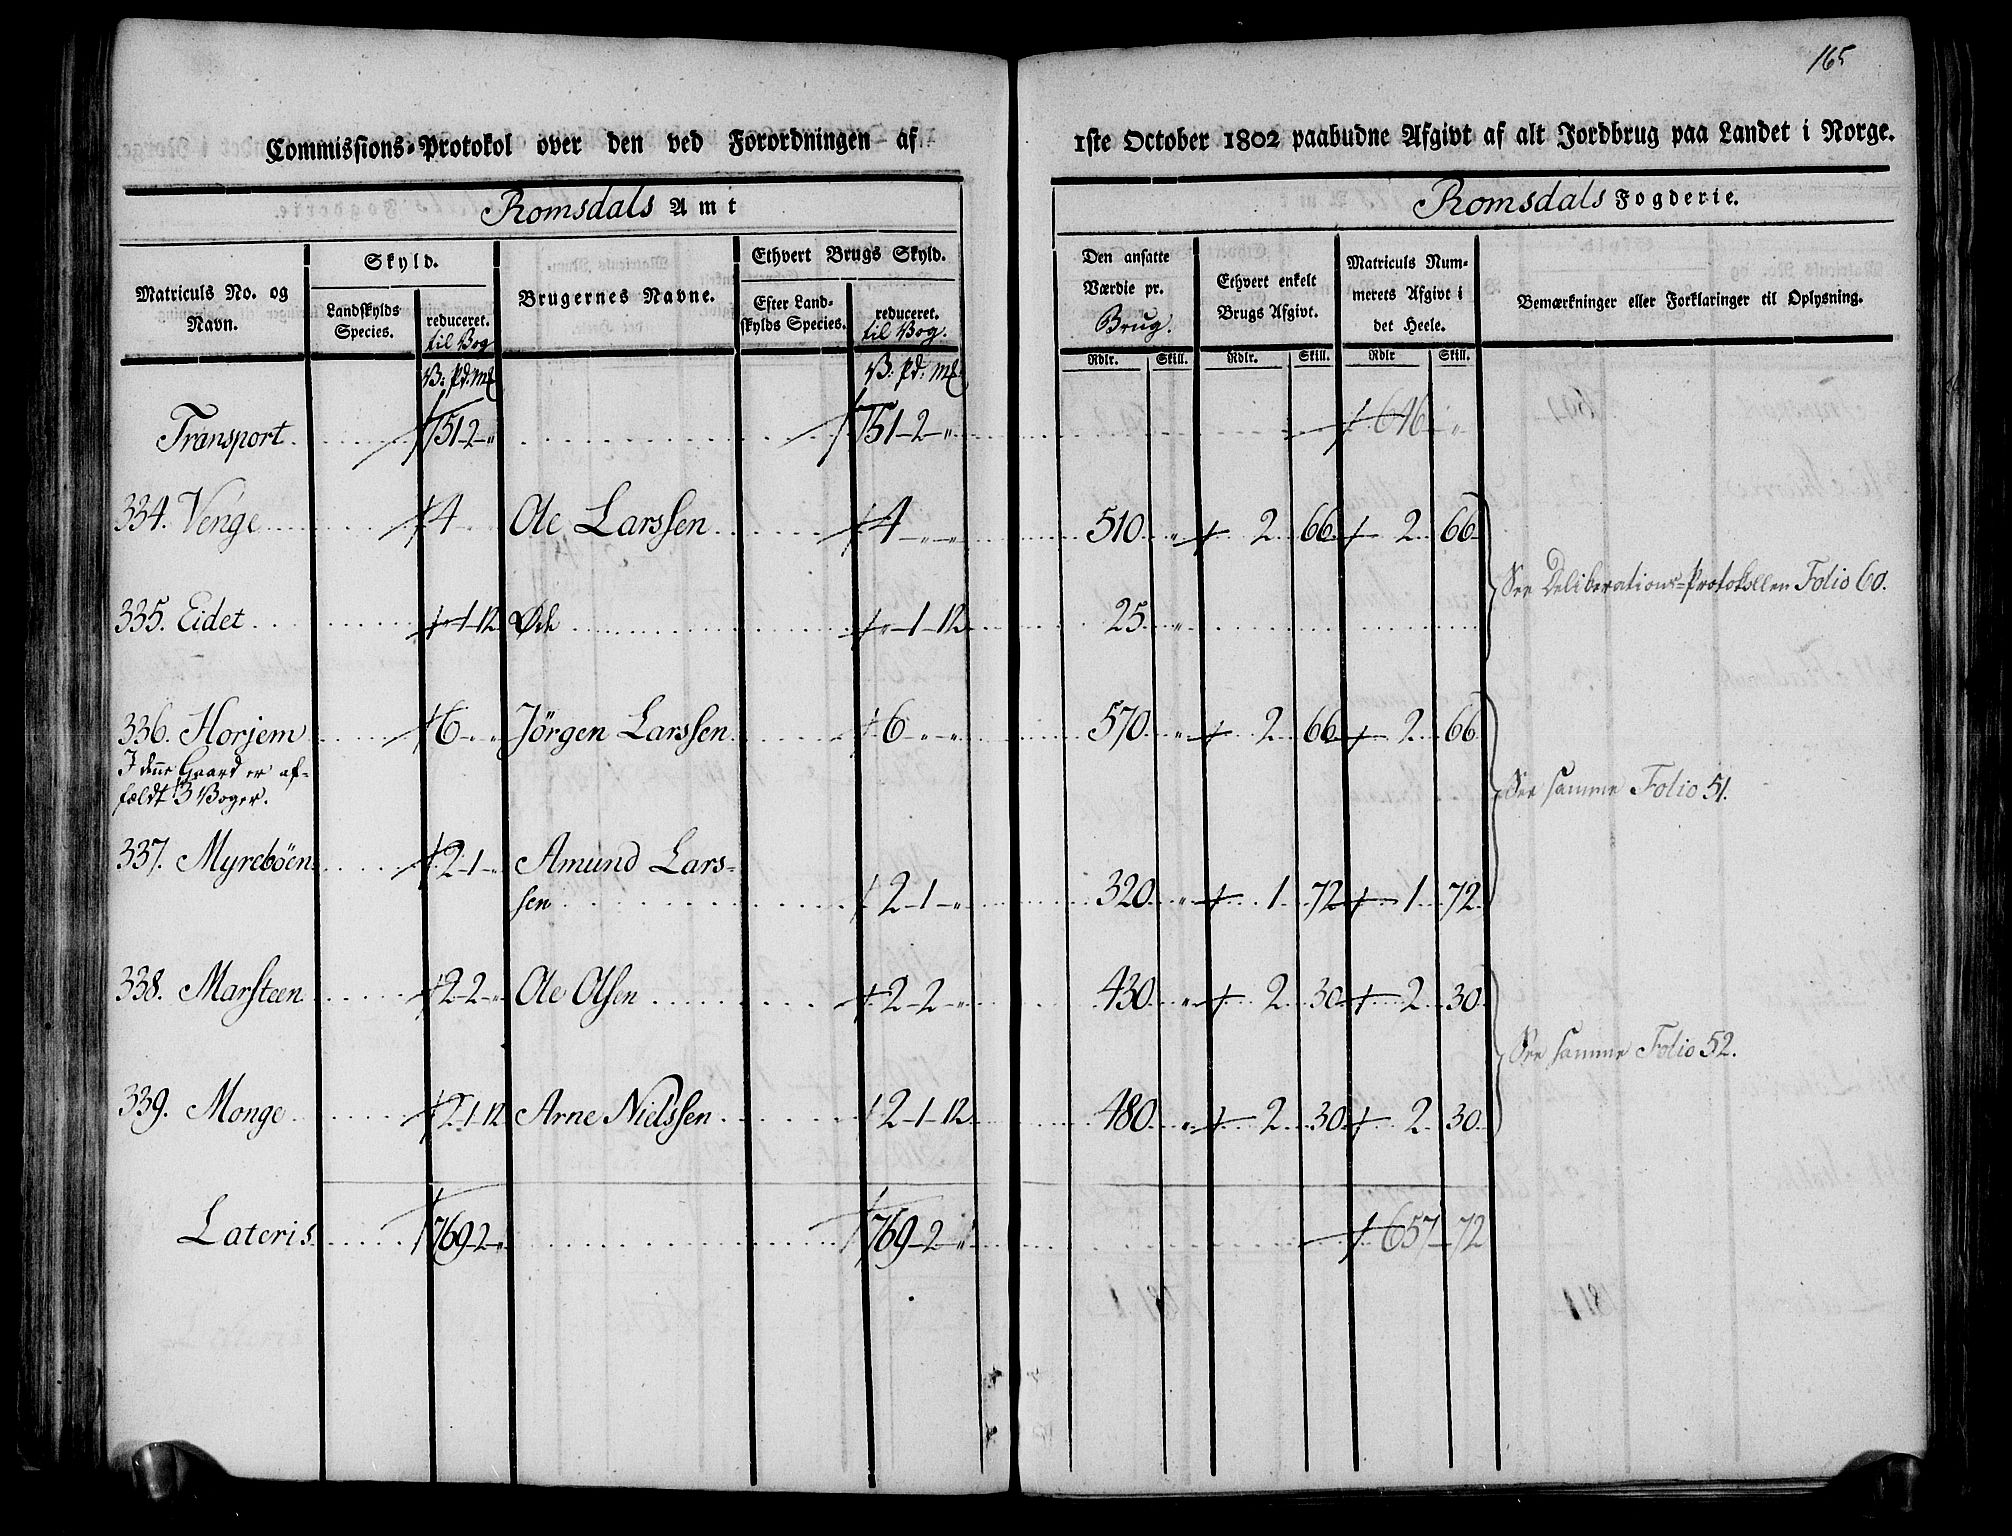 165
Commissions-Protokol over den ved Forordningen af 1ste October 1802 paabudne Afgivt af alt Jordbrug paa Landet i Norge.
Romsdals Amt
Romsdals Fogderie.
Matriculs No. og Navn.
Skyld.
Landskylds Species.
reduceret. til Vog
Brugernes Navne.
Ethvert Brugs Skyld.
Efter Landskylds Species.
reduceret. til Vog.
Den ansatte Værdie pr. Brug.
Ethvert enkelt Brugs Afgivt.
Matriculs Nummerets Afgivt i det Heele.
Bemærkninger eller Forklaringer til Oplysning.
V: Pd: Mk V: Pd: Mk Rdlr. Skill. Rdlr. Skill. Rdlr Skill.
Transport 751-2-" 751-2-" 646 "
334. Venge 4 Ole Larssen 4-"-" 510 " 2 66 2 66
See Deliberations-Protokollen Folio 60.
335. Eidet "-1-12 Øde "-1-12 25 "
336. Horjem 6 " " Jörgen Larssen 6 " " 570 " 2 66 2 66
I denne Gaard er af-
fældt 3 Voger.
See samme Folio 51.
337. Myreböen 2-1-" Amund Lars-
sen 2-1-" 320 " 1 72 1 72
338. Marsteen 2-2-" Ole Olsen 2-2-" 430 " 2 30 2 30
See samme Folio 52.
339. Monge 2-1-12 Arne Nielssen 2-1-12 480 " 2 30 2 30
Lateris 769-2-" 769-2-" 657-72